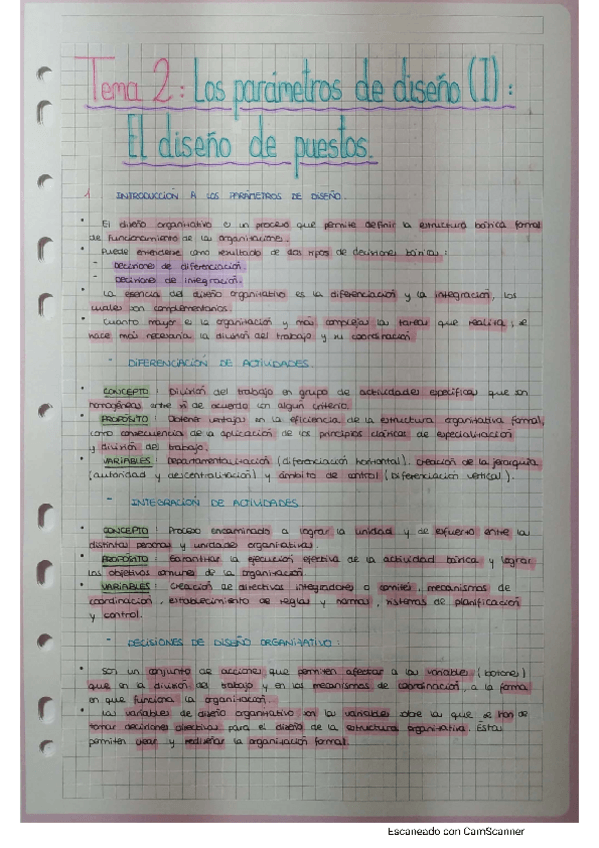 Tema 2: Los parámetros de diseño (I):
El diseño de puestos.
1 INTRODUCCIÓN A LOS PARÁMETROS DE DISEÑO.
• El diseño organitativo es un proceso que permite definir la estructura básica formal
de funcionamiento de las organizaciones.
• Puede entenderse como resultado de dos tipos de decisiones básicas:
- Decisiones de diferenciación.
- Decisiones de integración.
• La esencia del diseño organitativo es la diferenciación y la integración, los
cuales son complementarios.
• Cuanto mayor es la organitación y más complejas las tareas que realita, se
hace más necesaria la división del trabajo y su coordinación
- DIFERENCIACIÓN DE ACTIVIDADES.
• CONCEPTO: División del trabajo en grupo de actividades específicas que son
homogéneas entre sí de acuerdo con algún criterio.
• PROPÓSITO: Obtener ventajas en la eficiencia de la estructura organitativa formal,
como consecuencia de la aplicación de los principios clásicos de especialitación
y división del trabajo.
• VARIABLES: Departamentalitación (diferenciación horitontal). Creación de la jerarquía
(autoridad y descentralitación) y ámbito de control (Diferenciación vertical).
- INTEGRACIÓN DE ACTIVIDADES.
• CONCEPTO: Proceso encaminado a lograr la unidad y de esfuerto entre las
distintas personas y unidades organitativas.
• PROPÓSITO: Garantitar la ejecución efectiva de la actividad básica y lograr
los objetivos comunes de la organitación.
• VARIABLES: Creación de directivos integradores o comités, mecanismos de
coordinación, establecimiento de reglas y normas, sistemas de planificación
y control.
- DECISIONES DE DISEÑO ORGANITATIVO:
• Son un conjunto de acciones que permiten afectar a las variables (botones)
que en la división del trabajo y en los mecanismos de coordinación, a la forma
en que funciona la organitación.
• Las variables de diseño organitativo son las variables sobre las que se han de
tomar decisiones directivas para el diseño de la estructura organitativa. Éstas
permiten crear y rediseñar la organitación formal.
Escaneado con CamScanner